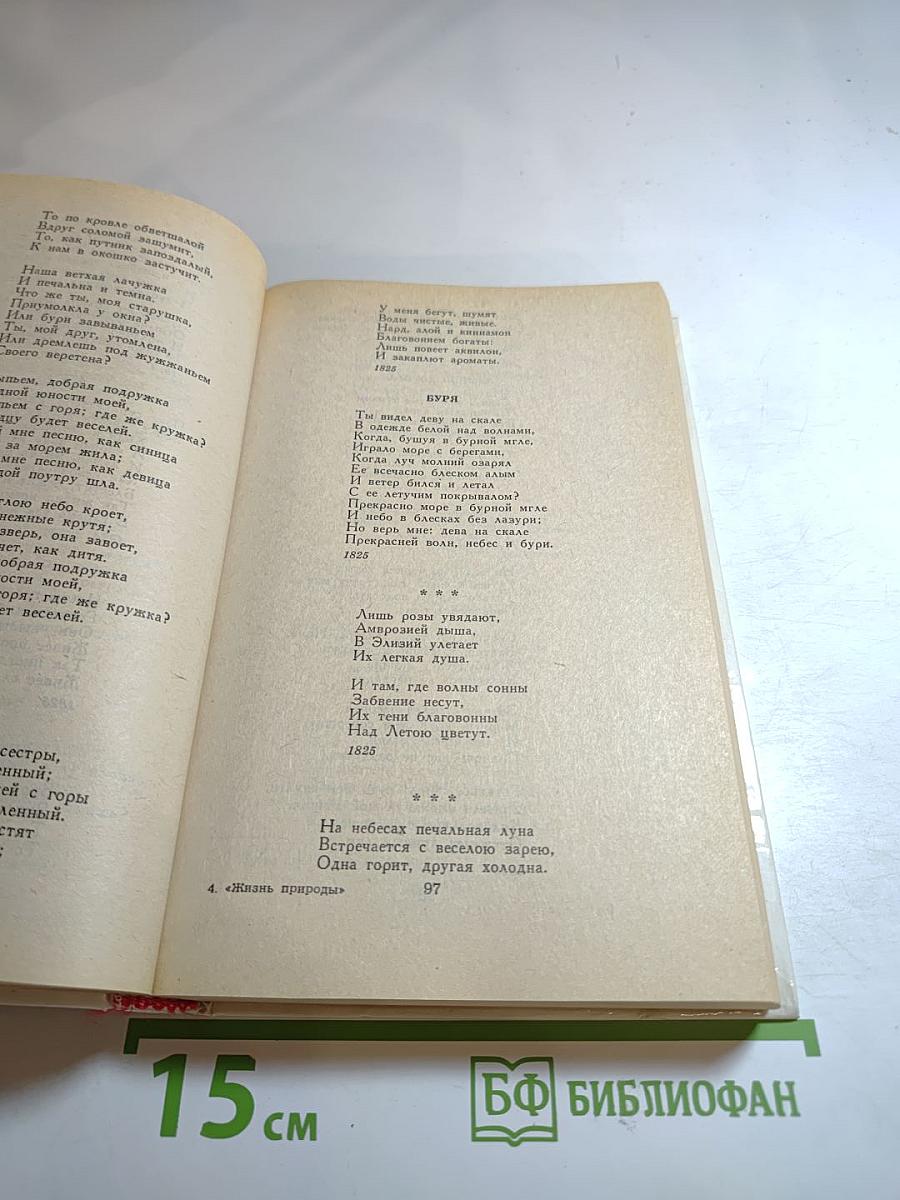 То по кровле обветшалой
Вдруг соломой зашумит,
То, как путник запоздалый,
К нам в окошко застучит.
Наша ветхая лачужка
И печальна и темна.
Что же ты, моя старушка,
Приумолкла у окна?
Или бури завываньем
Ты, мой друг, утомлена,
Или дремлешь под жужжаньем
Своего веретена?
ыпьем, добрая подружка
дной юности моей,
ьем с горя; где же кружка?
дцу будет веселей.
й мне песню, как синица
за морем жила;
мне песню, как девица
дой поутру шла.
глою небо кроет,
нежные крутя;
зверь, она завоет,
чет, как дитя.
добрая подружка
ости моей,
горя; где же кружка?
ет веселей.
сестры,
енный;
ей с горы
ленный.
стят
;
У меня бегут, шумят
Воды чистые, живые.
Нард, алой и киннамон
Благовонием богаты:
Лишь повеет аквилон,
И закаплют ароматы.
1825
БУРЯ
Ты видел деву на скале
В одежде белой над волнами,
Когда, бушуя в бурной мгле,
Играло море с берегами,
Когда луч молний озарял
Ее всечасно блеском алым
И ветер бился и летал
С ее летучим покрывалом?
Прекрасно море в бурной мгле
И небо в блесках без лазури;
Но верь мне: дева на скале
Прекрасней волн, небес и бури.
1825
* * *
Лишь розы увядают,
Амврозией дыша,
В Элизий улетает
Их легкая душа.
И там, где волны сонны
Забвение несут,
Их тени благовонны
Над Летою цветут.
1825
* * *
На небесах печальная луна
Встречается с веселою зарею,
Одна горит, другая холодна.
4. «Жизнь природы» 97
15 см
БФ БИБЛИОФАН